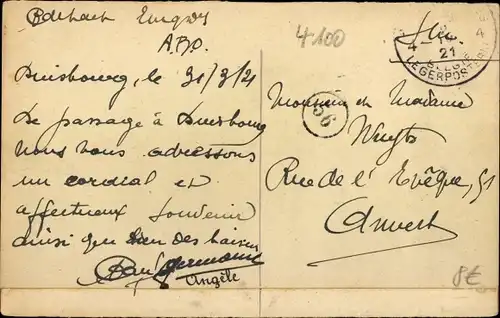 A.B.O.
4100
S.M.
4
4-
21
BELGIE
LEGERPOSTERIJ
Duisbourg, le 31/3/21
De passage à Duisbourg
Nous vous adressons
un cordial et
affectueux souvenir
ainsi que bien des baisers
Paul Germaine
Angèle
56
Monsieur et Madame
Nuyts
Rue de l'Evêque, 51
Anvers
8€